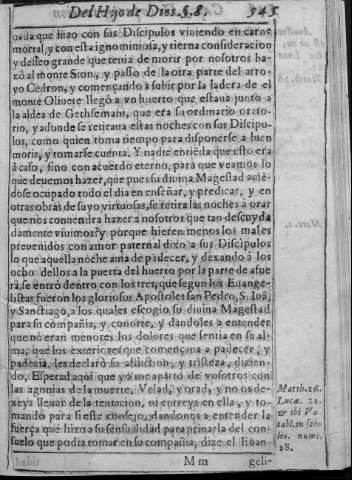 Del Hijo de Dios. §. 8. 545
nada que hizo con sus Discipulos viuiendo en carne
mortal, y con esta ignominiosa, y tierna consideracion
y desseo grande que tenia de morir por nosotros ba-
xò al monte Sion, y passò de la otra parte del arro-
yo Cedron, y començando a subir por la ladera de el
monte Oliuete llegò a vn huerto que estaua junto a
la aldea de Gethsemani, que era su ordinario orato-
rio, y adonde se retiraua estas noches con sus Discipu-
los, como quien toma tiempo para disponerse a bien
morir, y tomarse cuenta. Y nadie entiēda que esto era
à caso, sino con acuerdo eterno, para que veamos lo
que deuemos hazer, que pues su diuina Magestad auiē-
dose ocupado todo el dia en enseñar, y predicar, y en
otras obras de suyo virtuosas, se retira las noches a orar
que nos conuendra hazer a nosotros que tan descuyda
damente viuimos? y porque hieren menos los males
preuenidos con amor paternal dixo a sus Discipulos
lo que aquella noche auia de padecer, y dexando à los
ocho dellos a la puerta del huerto por la parte de afue
ra, se entrò dentro con los tres, que segun los Euange-
listas fueron los gloriosos Apostoles san Pedro, S. Iuā,
y Sanctiago, a los quales escogio su diuina Magestad
para su compañia, y conorte, y dandoles a entender
que no eran menores los dolores que sentia en su al-
ma, que los exteriores que començaua a padecer, y
padecia, les declarò su afliction, y tristeza, dizien-
do, Esperad aqui que yo me aparto de vosotros con
las agonias de la muerte, Velad, y orad, y no os de-
xeys lleuar de la tentacion, ni entreys en ella, y to-
mando para si este consejo, dandonos a entender la
fuerça que hizo a su sensualidad para priuarla del con-
suelo que podia tomar en su compañia, dize el Euan-
Matth. 26.
Luca. 22.
ibi Va
tabl. in scho
lio. nume.
28.
M m geli-